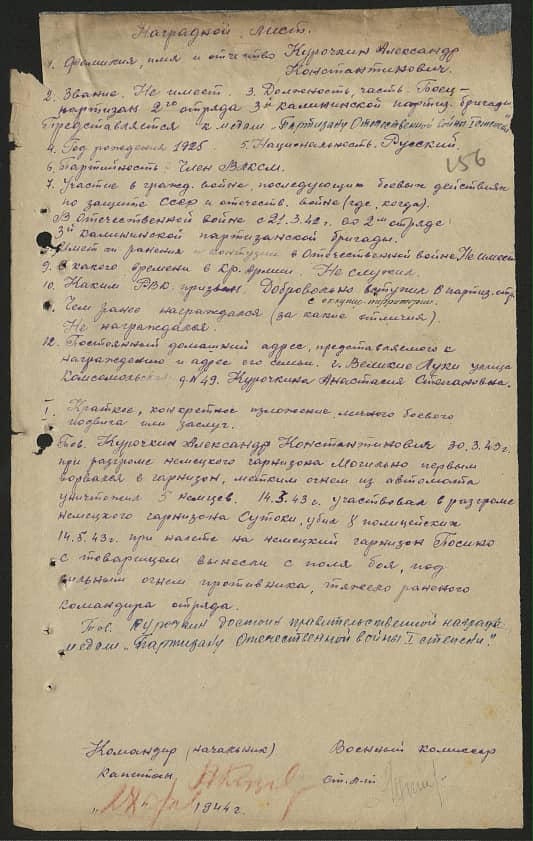 Наградной лист.
1. Фамилия, имя и отчество Курочкин Александр
Константинович.
2. Звание. Не имеет. 3. Должность, часть. Боец-
партизан 2го отряда 3й калининской партиз. бригады
Представляется к медали „Партизану Отечественной войны I степени"
4. Год рождения 1925 5. Национальность. Русский.
156
6. Партийность - Член ВЛКСМ.
7. Участие в гражд. войне, последующих боевых действиях
по защите СССР и отечеств. войне (где, когда).
В Отечественной войне с 21.3.42 г. во 2м отряде
3й калининской партизанской бригады.
8. Имеет ли ранения и контузии в Отечественной войне. Не имеет
9. С какого времени в Кр. Армии. Не служил.
10. Каким РВК призван. Добровольно вступил в партиз. отр.
с оккупир. территории.
Чем ранее награждался (за какие отличия).
Не награждался.
12. Постоянный домашний адрес, представляемого к
награждению и адрес его семьи. г. Великие Луки улица
Комсомольская д. №49. Курочкина Анастасия Степановна.
I. Краткое, конкретное изложение личного боевого
подвига или заслуг.
Тов. Курочкин Александр Константинович 30.3.43г.
при разгроме немецкого гарнизона Могильно первым
ворвался в гарнизон, метким огнем из автомата
уничтожил 5 немцев. 14.5.43 г. участвовал в разгроме
немецкого гарнизона Сутоки, убил 8 полицейских
14.5.43г. при налете на немецкий гарнизон Посино
с товарищем вынесли с поля боя, под
сильным огнем противника, тяжело раненого
командира отряда.
Тов. Курочкин достоин правительственной награды
медали „Партизану Отечественной войны I степени."
Командир (начальник) Военный комиссар
капитан ст. л-т
1944 г.